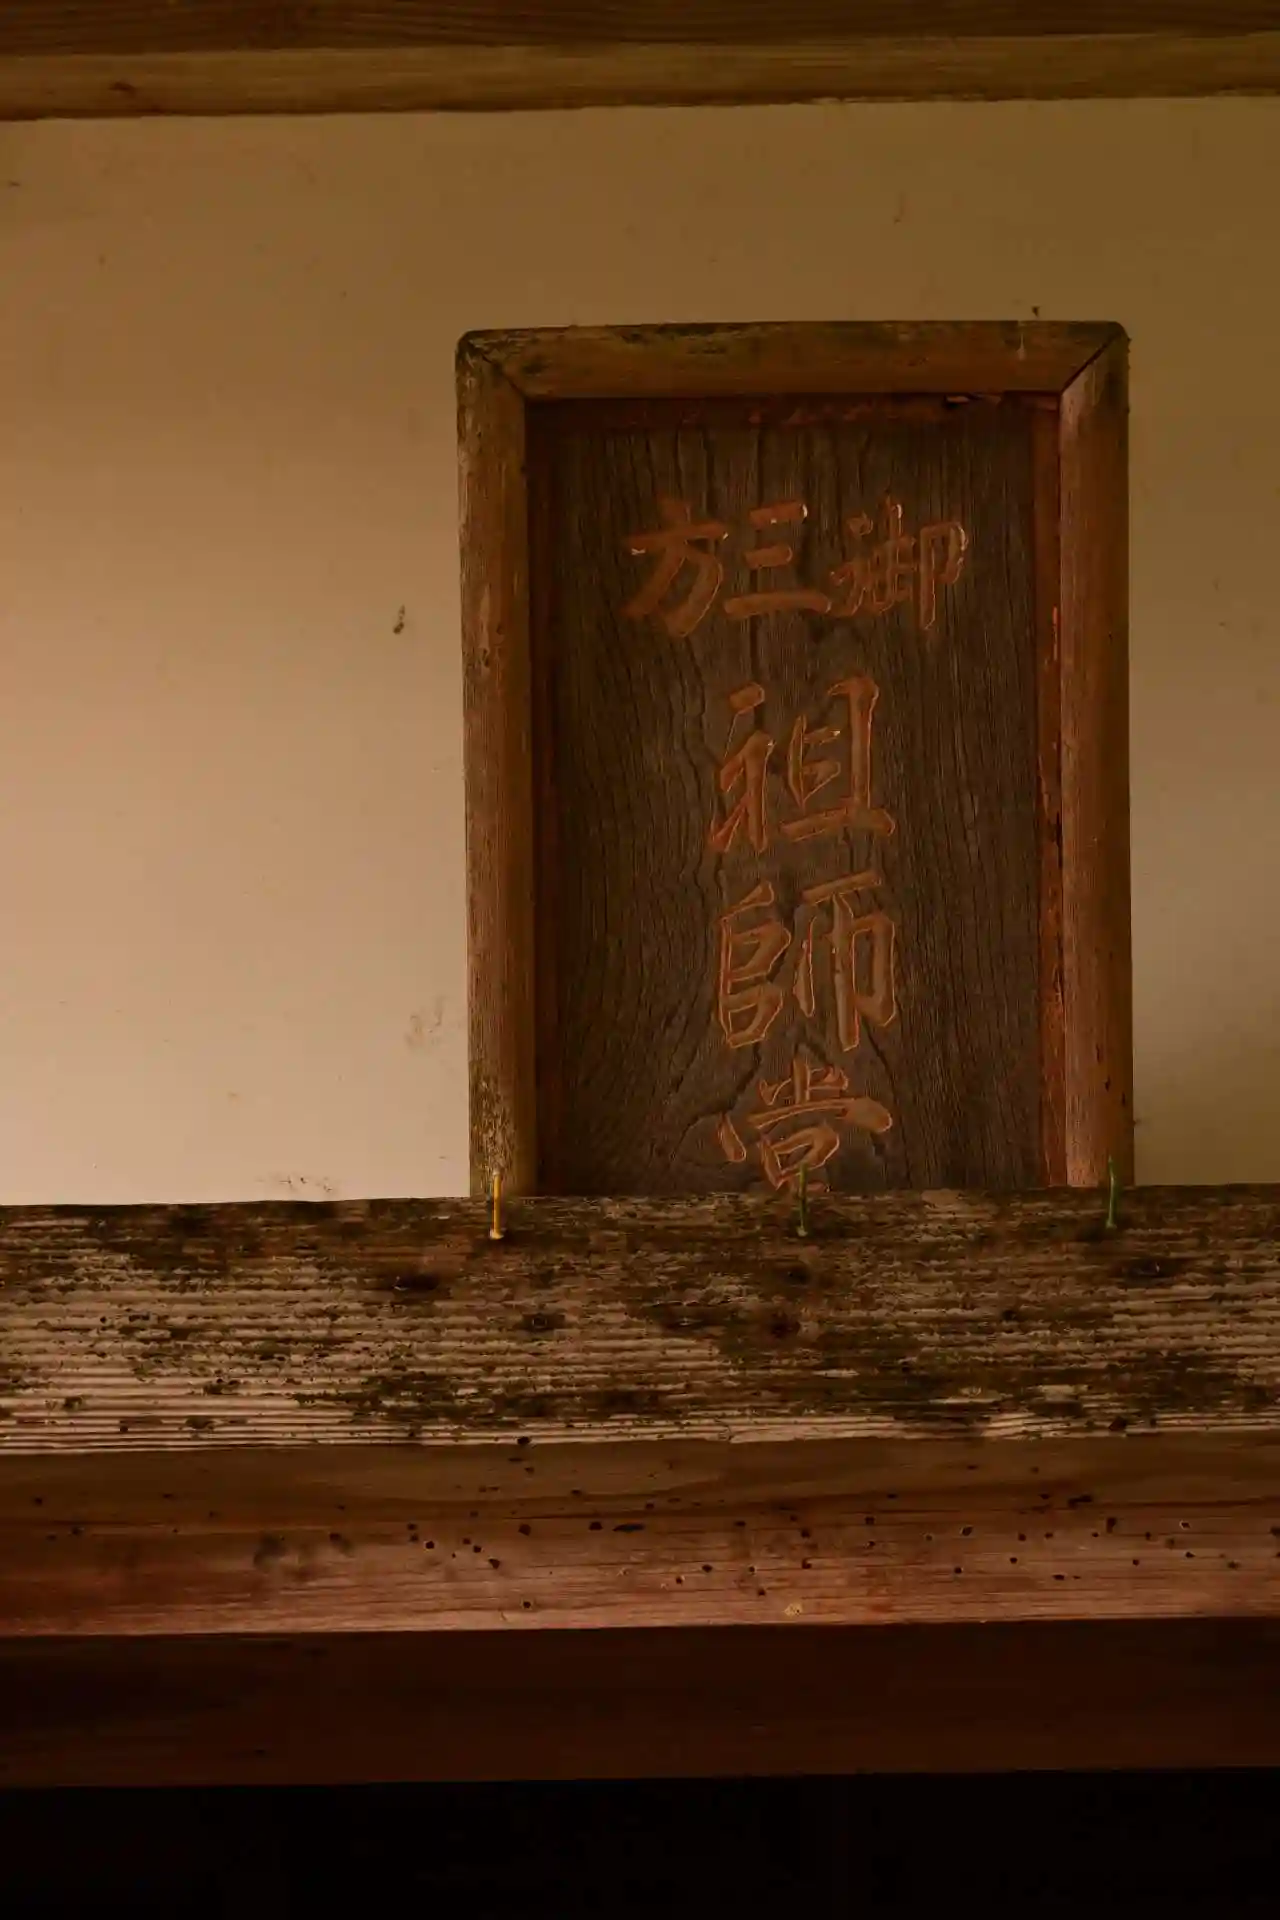 御三方
祖師堂